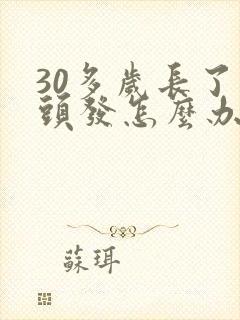 30多歲長了
頭發怎麼办
蘇珥